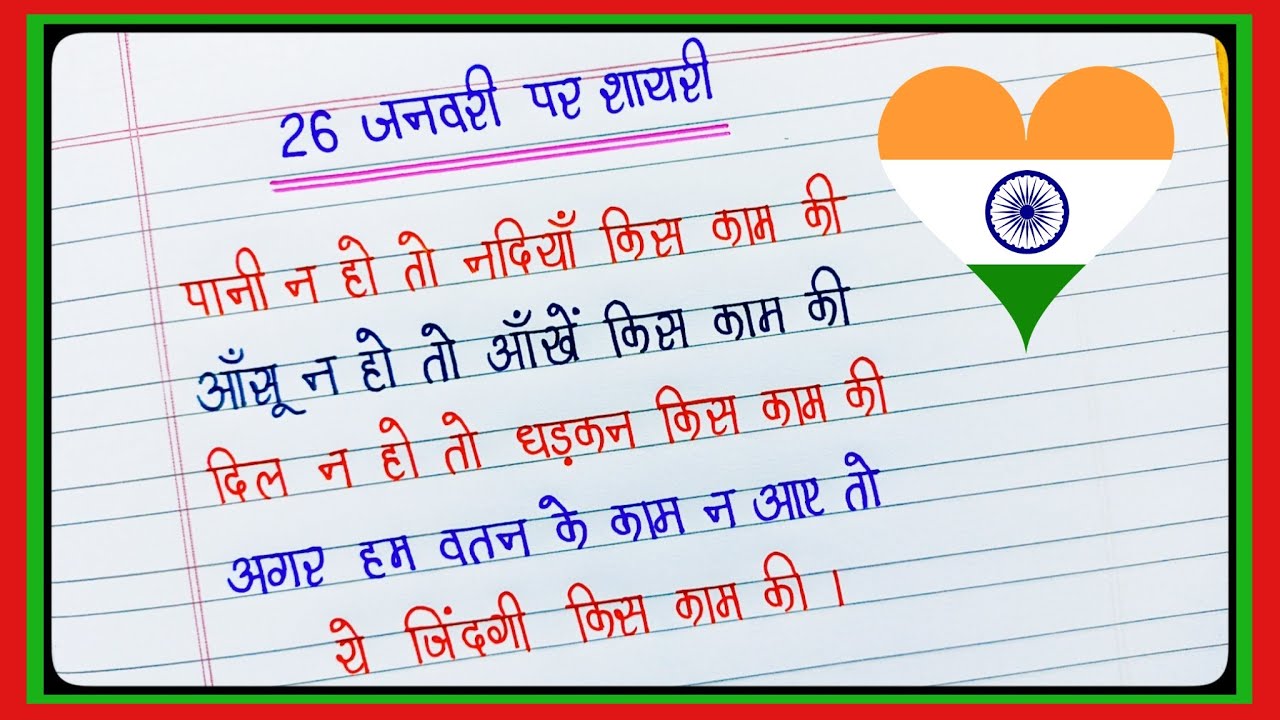 26 जनवरी पर शायरी
पानी न हो तो नदियाँ किस काम की
आँसू न हो तो आँखें किस काम की
दिल न हो तो धड़कन किस काम की
अगर हम वतन के काम न आए तो
ये जिंदगी किस काम की ।